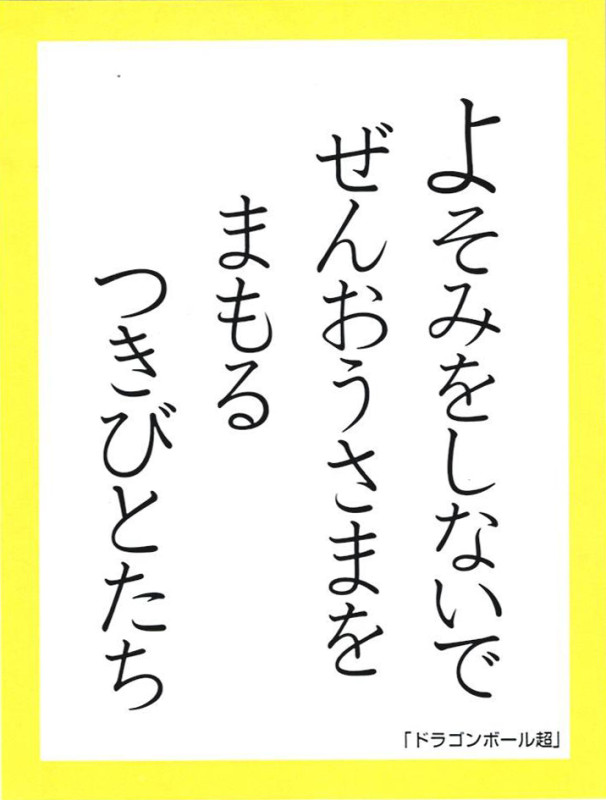 よそみをしないで
ぜんおうさまを
まもる
つきびとたち
「ドラゴンボール超」